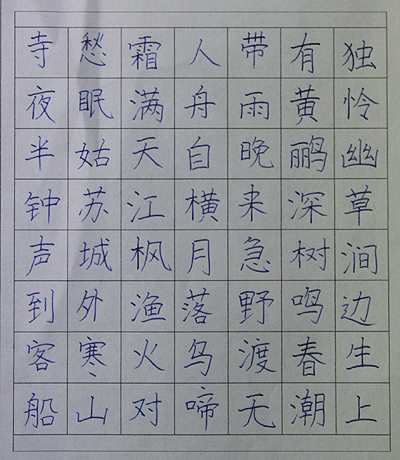 独怜幽草涧边生上
有黄鹂深树鸣春潮
带雨晚来急野渡无
人舟自横月落乌啼
霜满天江枫渔火对
愁眠姑苏城外寒山
寺夜半钟声到客船